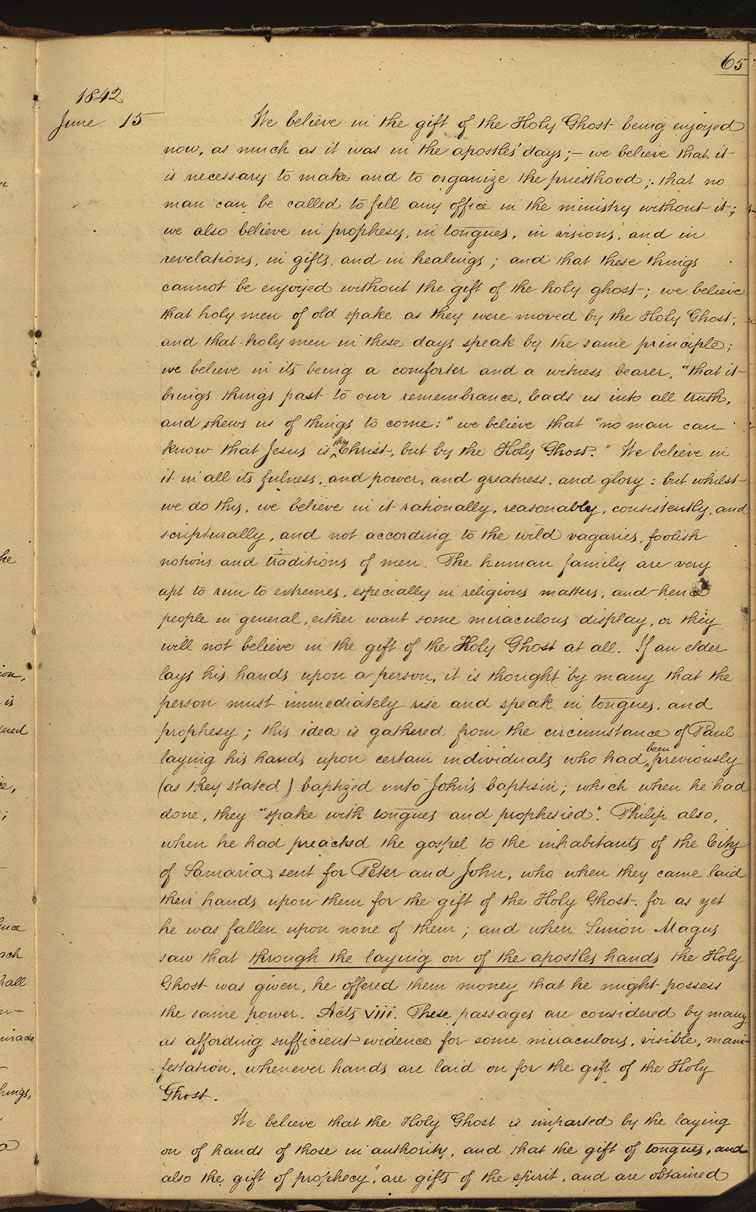 65
1842
June 15 We believe in the gift of the Holy Ghost being enjoyed
now, as much as it was in the apostles' days; – we believe that it
is necessary to make and to organize the priesthood; that no
man can be called to fill any office in the ministry without it;
we also believe in prophesy, in tongues, in visions, and in
revelations, in gifts, and in healings; and that these things
cannot be enjoyed without the gift of the holy ghost; we believe
that holy men of old spake as they were moved by the Holy Ghost,
and that holy men in these days speak by the same principle;
we believe in its being a comforter and a witness bearer, "that it
brings things past to our remembrance, leads us into all truth,
and shews us of things to come:" we believe that "no man can
know that Jesus is the Christ, but by the Holy Ghost." We believe in
it in all its fulness, and power, and greatness, and glory: but whilst
we do this, we believe in it rationally, reasonably, consistently, and
scripturally, and not according to the wild vagaries, foolish
notions and traditions of men. The human family are very
apt to run to extremes, especially in religious matters, and hence
people in general, either want some miraculous display, or they
will not believe in the gift of the Holy Ghost at all. If an elder
lays his hands upon a person, it is thought by many that the
person must immediately rise and speak in tongues, and
prophesy; this idea is gathered from the circumstance of Paul
laying his hands upon certain individuals who had been previously
(as they stated) baptized unto John's baptism; which when he had
done, they "spake with tongues and prophesied". Philip also,
when he had preached the gospel to the inhabitants of the City
of Samaria, sent for Peter and John, who when they came laid
their hands upon them for the gift of the Holy Ghost, for as yet
he was fallen upon none of them; and when Simon Magus
saw that through the laying on of the apostles hands the Holy
Ghost was given, he offered them money that he might possess
the same power. Acts viii. These passages are considered by many
as affording sufficient evidence for some miraculous, visible, mani-
festation, whenever hands are laid on for the gift of the Holy
Ghost.
We believe that the Holy Ghost is imparted by the laying
on of hands of those in authority, and that the gift of tongues, and
also the gift of prophecy, are gifts of the spirit, and are obtained